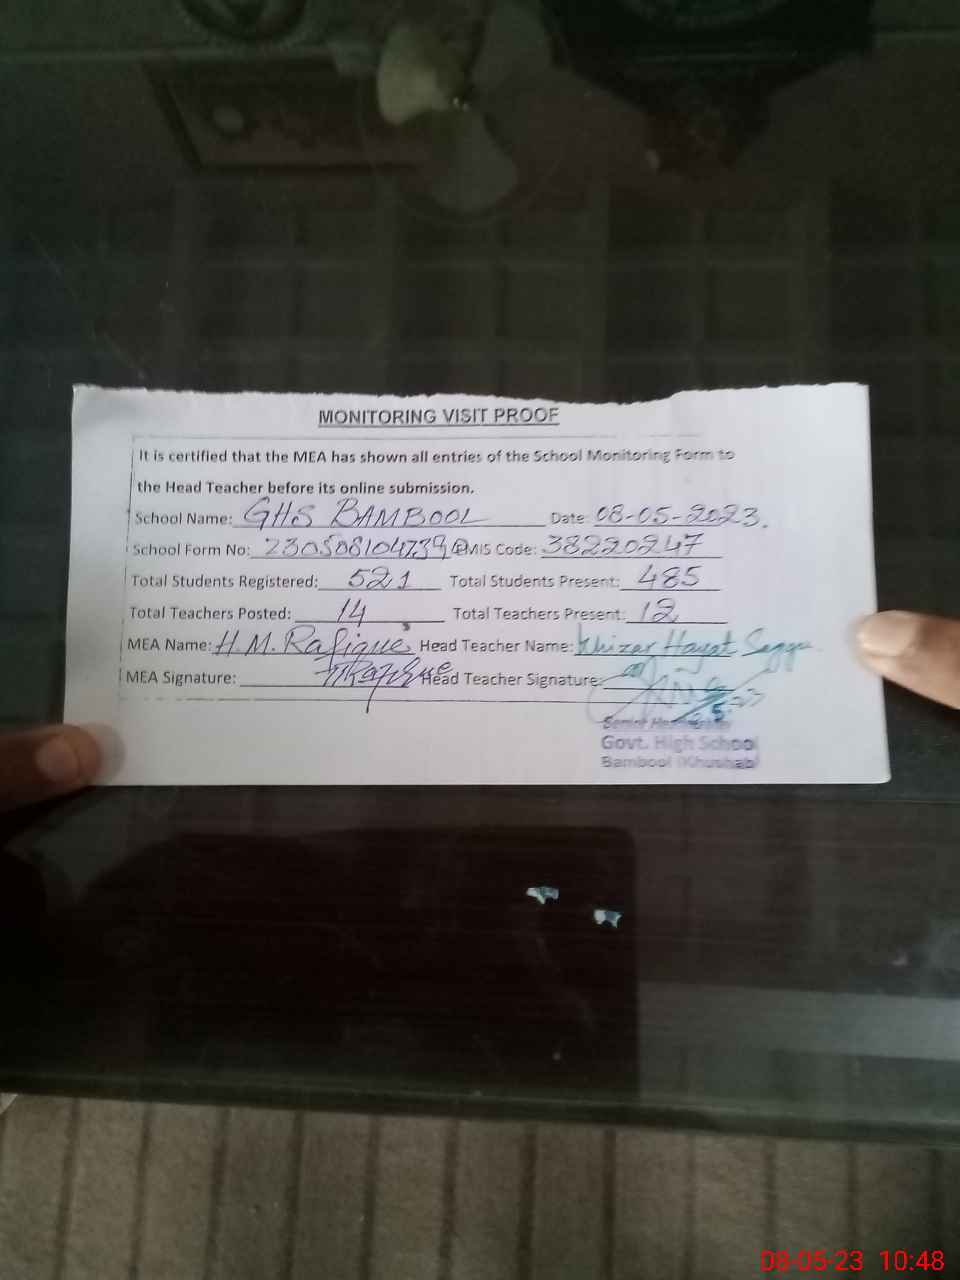 MONITORING VISIT PROOF
It is certified that the MEA has shown all entries of the School Monitoring Form to
the Head Teacher before its online submission.
School Name: GHS BAMBOOL Date: 08-05-2023.
School Form No: EMIS Code: 38220247
Total Students Registered: 521 Total Students Present: 485
Total Teachers Posted: 14 Total Teachers Present: 12
MEA Name: H.M. Rafique Head Teacher Name: Khizar Hayat
MEA Signature: Head Teacher Signature:
Govt. High School
Bambool (Khushab)
08-05-23 10:48